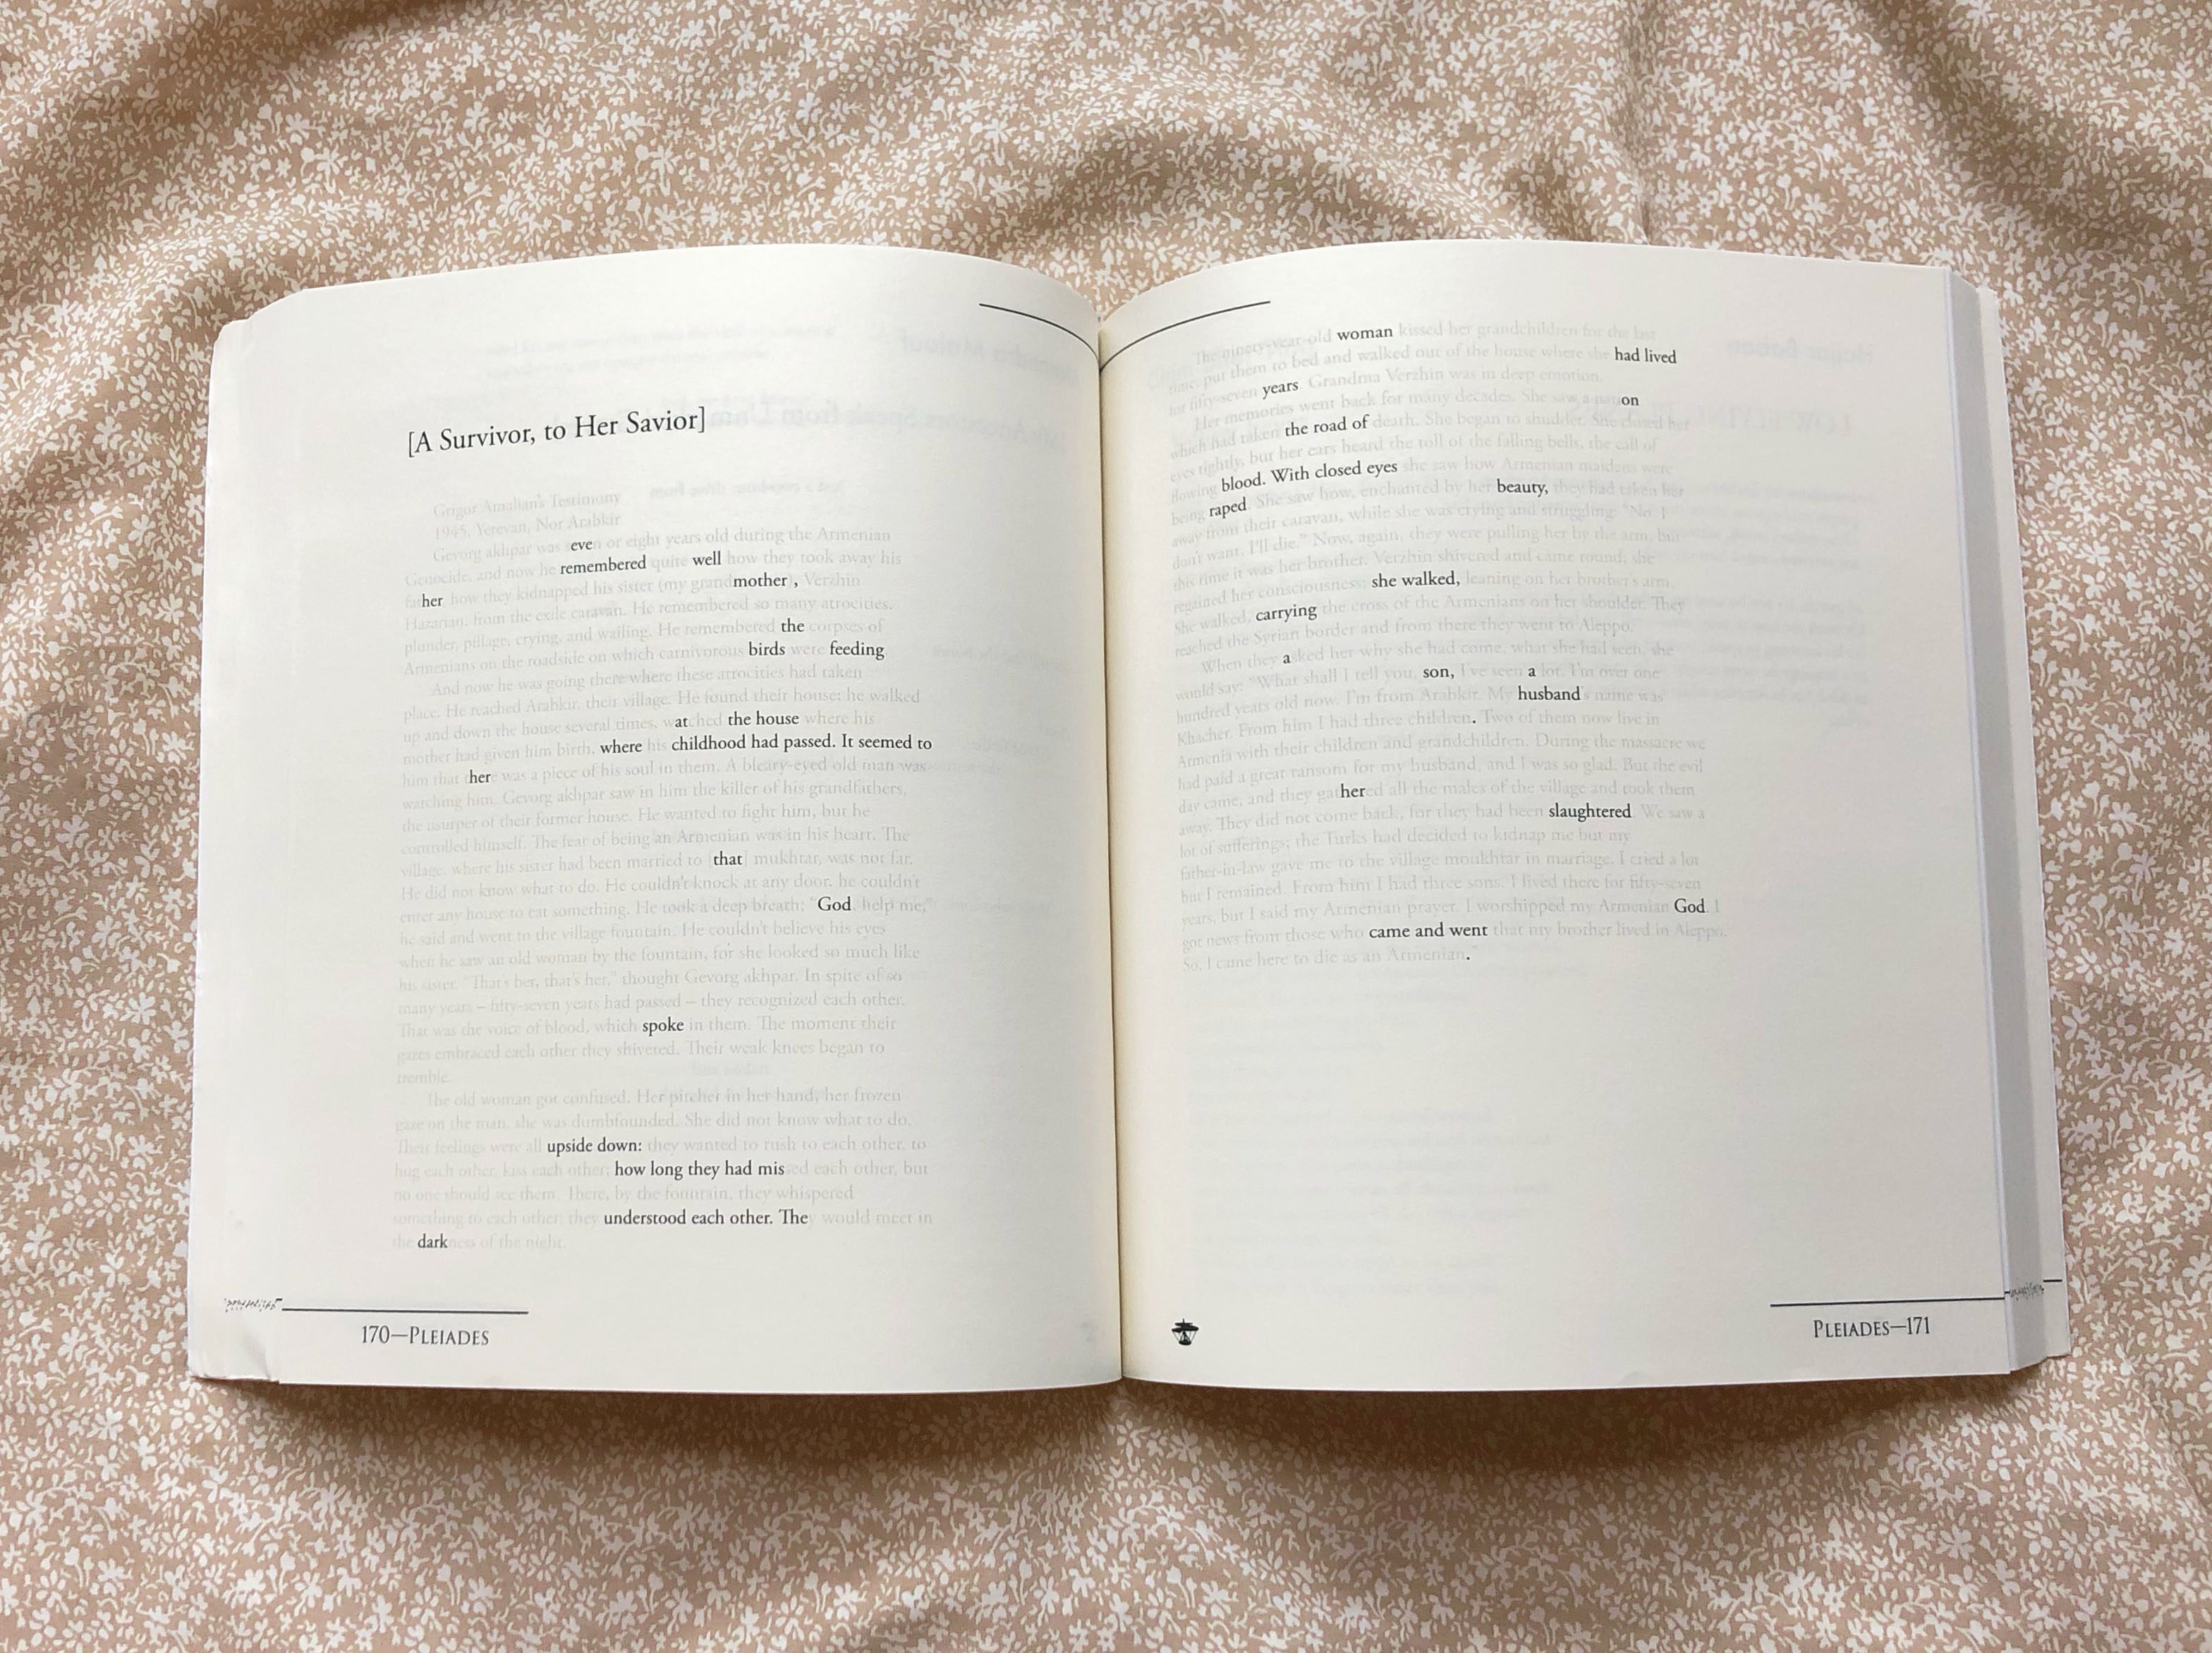 [A Survivor, to Her Savior]
Grigor Amalian's Testimony
1945, Yerevan, Nor Arabkir
Gevorg akhpar was seven or eight years old during the Armenian
Genocide, and now he remembered quite well how they took away his
father, how they kidnapped his sister (my grandmother), Verzhin
Hazarian, from the exile caravan. He remembered so many atrocities,
plunder, pillage, crying, and wailing. He remembered the corpses of
Armenians on the roadside on which carnivorous birds were feeding
And now he was going there where these atrocities had taken
place. He reached Arabkir, their village. He found their house; he walked
up and down the house several times, watched the house where his
mother had given him birth, where his childhood had passed. It seemed to
him that there was a piece of his soul in them. A bleary-eyed old man was
watching him. Gevorg akhpar saw in him the killer of his grandfathers,
the usurper of their former house. He wanted to fight him, but he
controlled himself. The fear of being an Armenian was in his heart. The
village, where his sister had been married to [that] mukhtar, was not far.
He did not know what to do. He couldn't knock at any door, he couldn't
enter any house to eat something. He took a deep breath; "God, help me,"
he said and went to the village fountain. He couldn't believe his eyes
when he saw an old woman by the fountain, for she looked so much like
his sister. "That's her, that's her," thought Gevorg akhpar. In spite of so
many years – fifty-seven years had passed – they recognized each other.
That was the voice of blood, which spoke in them. The moment their
gazes embraced each other they shivered. Their weak knees began to
tremble.
The old woman got confused. Her pitcher in her hand, her frozen
gaze on the man, she was dumbfounded. She did not know what to do.
Their feelings were all upside down: they wanted to rush to each other, to
hug each other, kiss each other; how long they had missed each other, but
no one should see them. There, by the fountain, they whispered
something to each other; they understood each other. They would meet in
the darkness of the night.
170—PLEIADES
The ninety-year-old woman kissed her grandchildren for the last
time, put them to bed and walked out of the house where she had lived
for fifty-seven years. Grandma Verzhin was in deep emotion.
Her memories went back for many decades. She saw a nation
which had taken the road of death. She began to shudder. She closed her
eyes tightly, but her ears heard the toll of the falling bells, the call of
flowing blood. With closed eyes she saw how Armenian maidens were
being raped. She saw how, enchanted by her beauty, they had taken her
away from their caravan, while she was crying and struggling: "No, I
don't want, I'll die." Now, again, they were pulling her by the arm, but
this time it was her brother. Verzhin shivered and came round; she
regained her consciousness; she walked, leaning on her brother's arm.
She walked, carrying the cross of the Armenians on her shoulder. They
reached the Syrian border and from there they went to Aleppo.
When they asked her why she had come, what she had seen, she
would say: "What shall I tell you, son, I've seen a lot. I'm over one
hundred years old now. I'm from Arabkir. My husband's name was
Khacher. From him I had three children. Two of them now live in
Armenia with their children and grandchildren. During the massacre we
had paid a great ransom for my husband, and I was so glad. But the evil
day came, and they gathered all the males of the village and took them
away. They did not come back, for they had been slaughtered. We saw a
lot of sufferings; the Turks had decided to kidnap me but my
father-in-law gave me to the village moukhtar in marriage. I cried a lot
but I remained. From him I had three sons. I lived there for fifty-seven
years, but I said my Armenian prayer. I worshipped my Armenian God. I
got news from those who came and went that my brother lived in Aleppo.
So, I came here to die as an Armenian."
PLEIADES—171